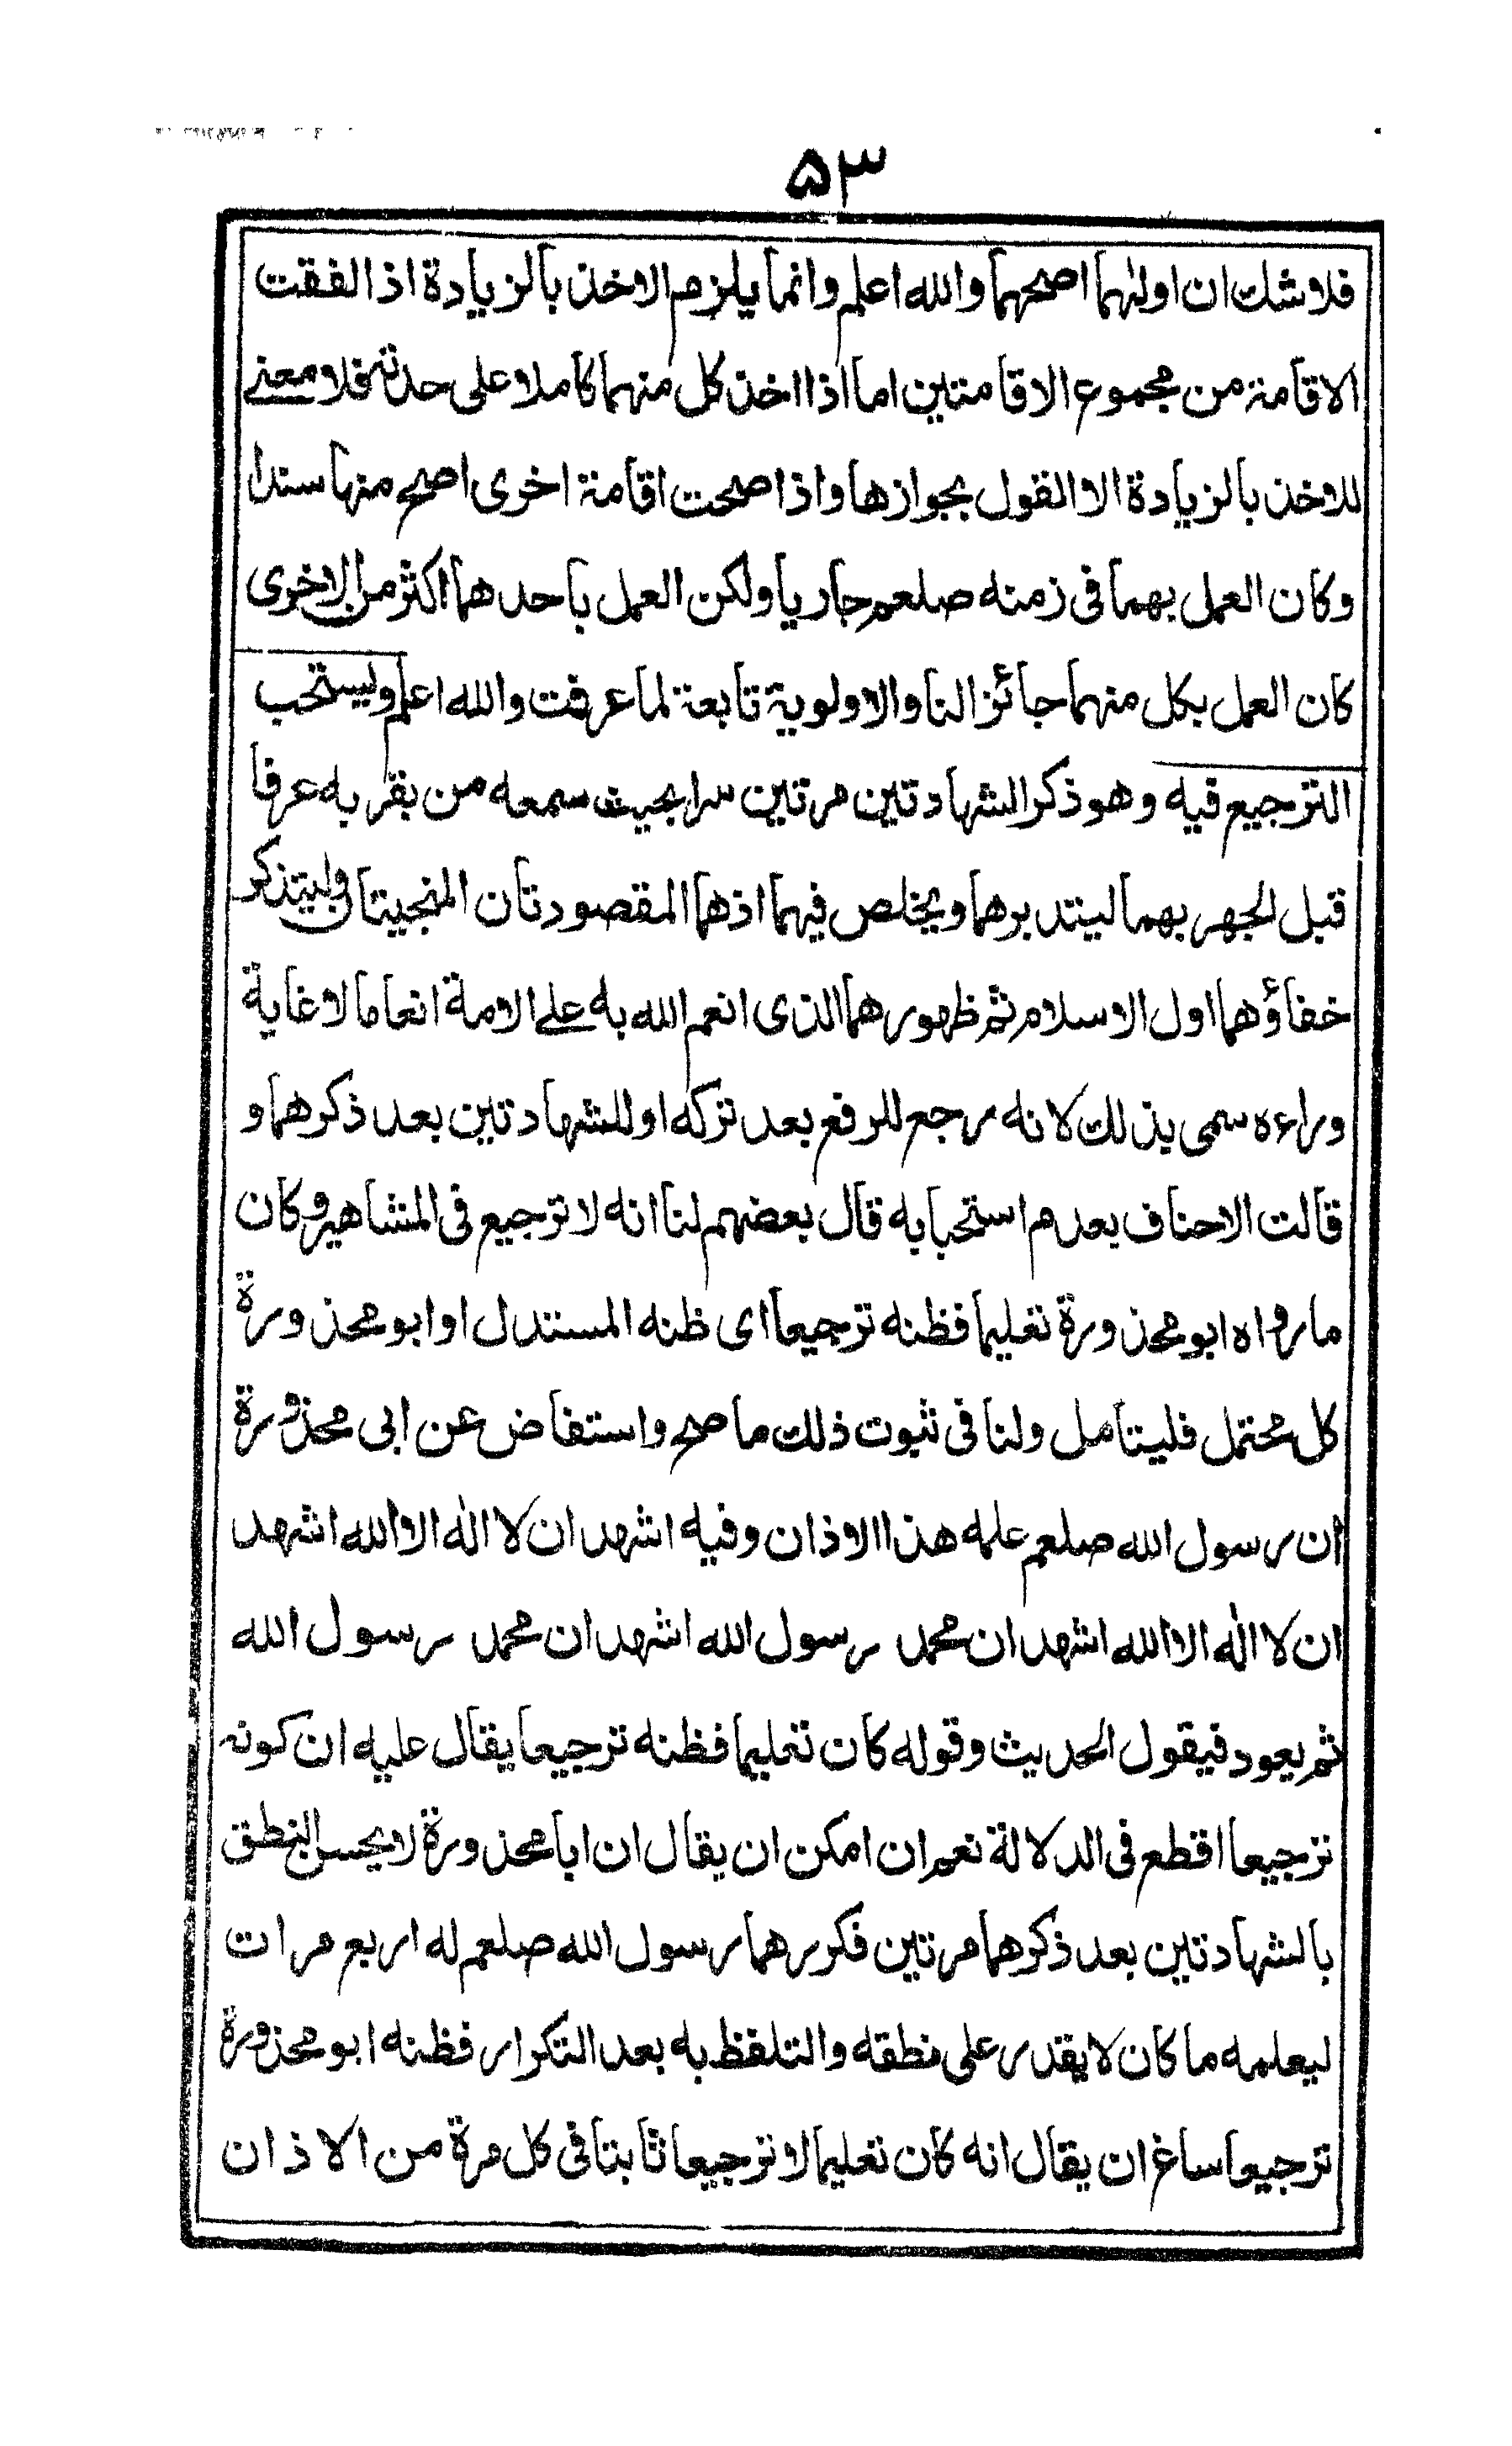 ۵۳
فلا شك ان اولٰهما اصحهما والله اعلم وانما يلزم الاخذ بالزيادة اذ الفقت
الاقامة من مجموع الاقامتين اما اذا اخذ كل منهما كاملا على حدته فلا معنے
للاخذ بالزيادة الا القول بجوازها واذا صحت اقامة اخرى اصح منها سندا
وكان العمل بهما فى زمنه صلعم جاريا ولكن العمل باحدهما اكثر من الاخرى
كان العمل بكل منهما جائز النا والاولوية تابعة لما عرفت والله اعلم ويستحب
الترجيع فيه وهو ذكر الشهادتين مرتين سرا بحيث سمعه من بقربه عرفا
قبل الجهر بهما ليتدبرهما ويخلص فيهما اذ هما المقصودتان المنجيتان وليتذكر
خفاؤهما اول الاسلام ثم ظهورهما الذى انعم الله به علے الامة انعاما لا غاية
وراءه سمى بذلك لانه رجع للرفع بعد تركه او للشهادتين بعد ذكرهما و
قالت الاحناف بعدم استحبابه قال بعضهم لنا انه لا ترجيع فى المشاهير وكان
ما رواه ابو محذورة تعليما فظنه ترجيعا اى ظنه المستدل او ابو محذورة
كل محتمل فليتامل ولنا فى ثبوت ذلك ما صح واستفاض عن ابى محذورة
ان رسول الله صلعم علمه هذا الاذان وفيه اشهد ان لا الٰه الا الله اشهد
ان لا الٰه الا الله اشهد ان محمد رسول الله اشهد ان محمد رسول الله
ثم يعود فيقول الحديث وقوله كان تعليما فظنه ترجيعا يقال عليه ان كونه
ترجيعا اقطع فى الدلالة نعم ان امكن ان يقال ان ابا محذورة لا يحسن النطق
بالشهادتين بعد ذكرهما مرتين فكررهما رسول الله صلعم له اربع مرات
ليعلمه ما كان لا يقدر على نطقه والتلفظ به بعد التكرار فظنه ابو محذورة
ترجيعا ساغ ان يقال انه كان تعليما لا ترجيعا ثابتا فى كل مرة من الاذان